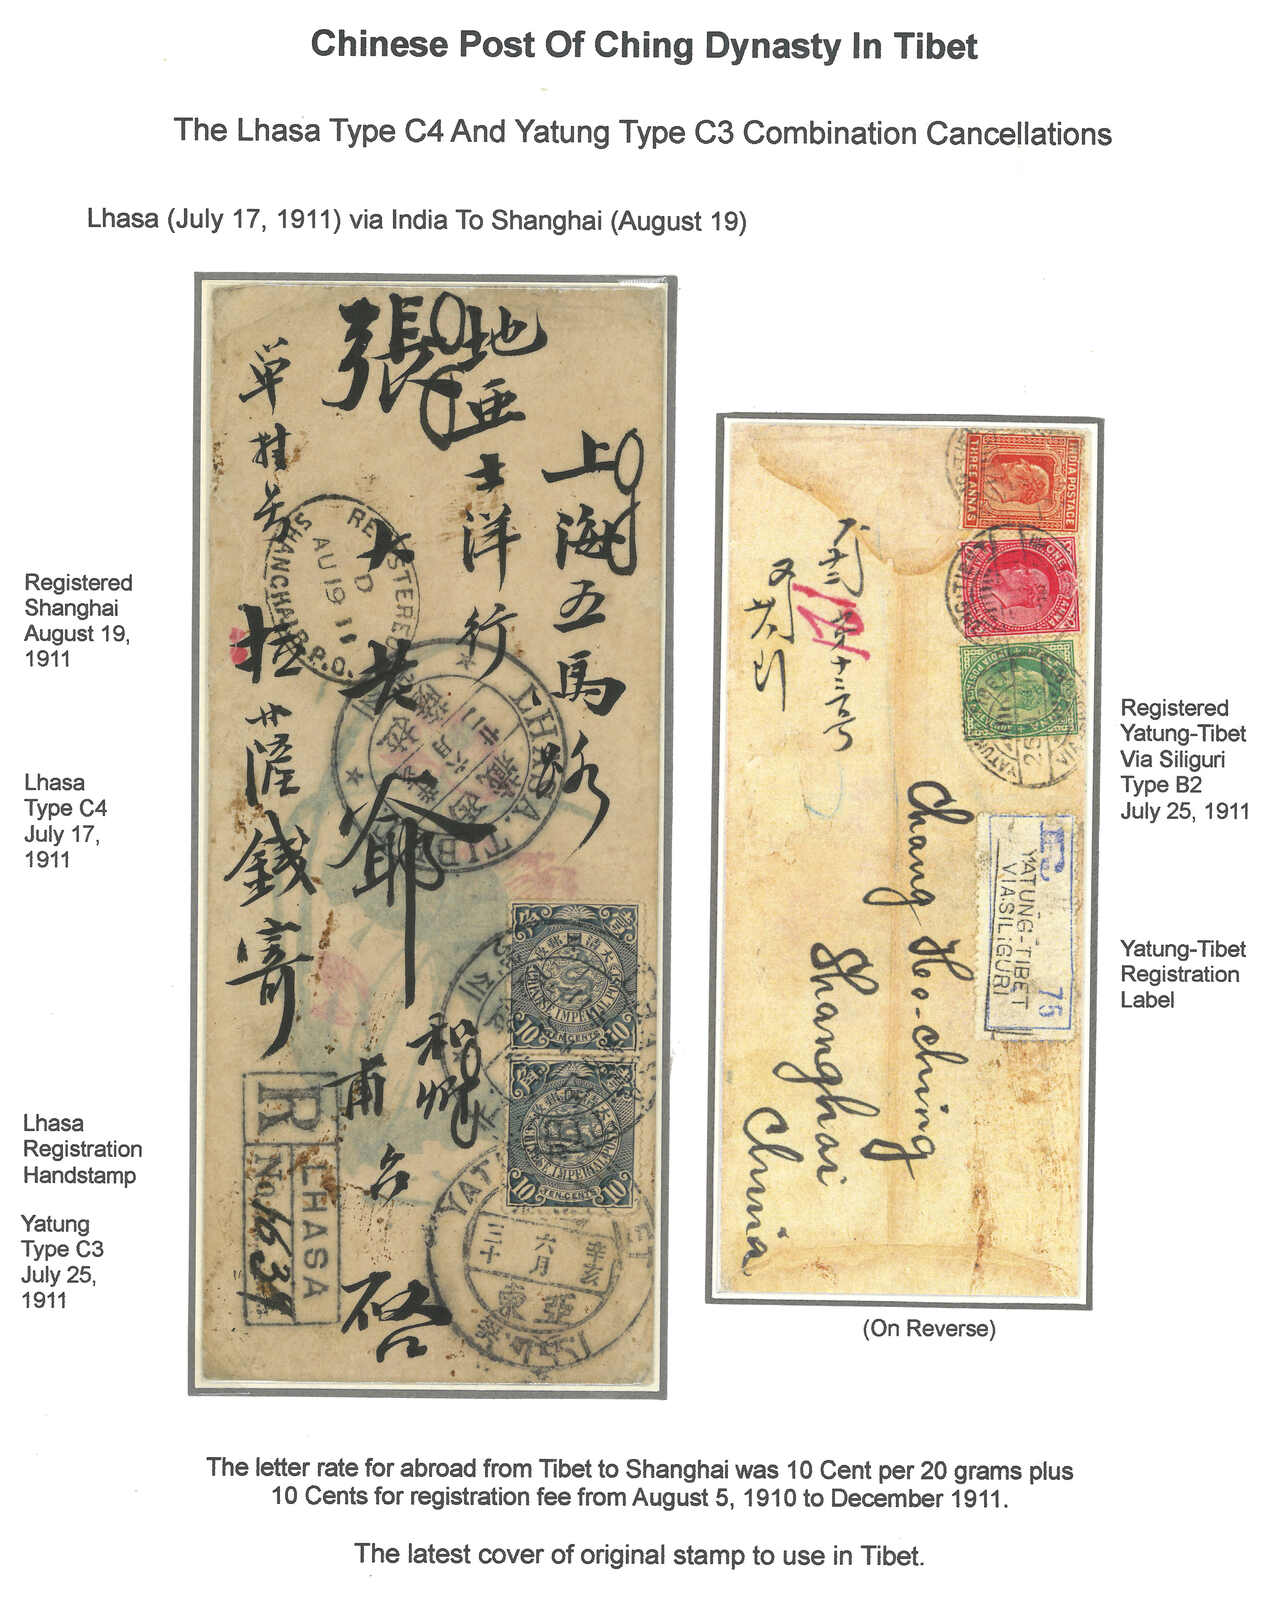 Chinese Post Of Ching Dynasty In Tibet
The Lhasa Type C4 And Yatung Type C3 Combination Cancellations
Lhasa (July 17, 1911) via India To Shanghai (August 19)
Registered
Shanghai
August 19,
1911
Lhasa
Type C4
July 17,
1911
Lhasa
Registration
Handstamp
Yatung
Type C3
July 25,
1911
上海五馬
地亜士洋行
張大老爺
和州
甫台
啓
錢寄
REGISTERED
D
AU 19 11
SHANGHAI B.P.O.
LHASA. TIBET
CHINESE IMPERIAL POST
10 TEN CENTS 10
CHINESE IMPERIAL POST
10 TEN CENTS 10
R
LHASA
No.
辛亥
六月
三十
亞東
INDIA POSTAGE
THREE ANNAS
ONE ANNA
25
R
YATUNG-TIBET
VIA SILIGURI
75
Chang Ho-ching
Shanghai
China
Registered
Yatung-Tibet
Via Siliguri
Type B2
July 25, 1911
Yatung-Tibet
Registration
Label
(On Reverse)
The letter rate for abroad from Tibet to Shanghai was 10 Cent per 20 grams plus
10 Cents for registration fee from August 5, 1910 to December 1911.
The latest cover of original stamp to use in Tibet.